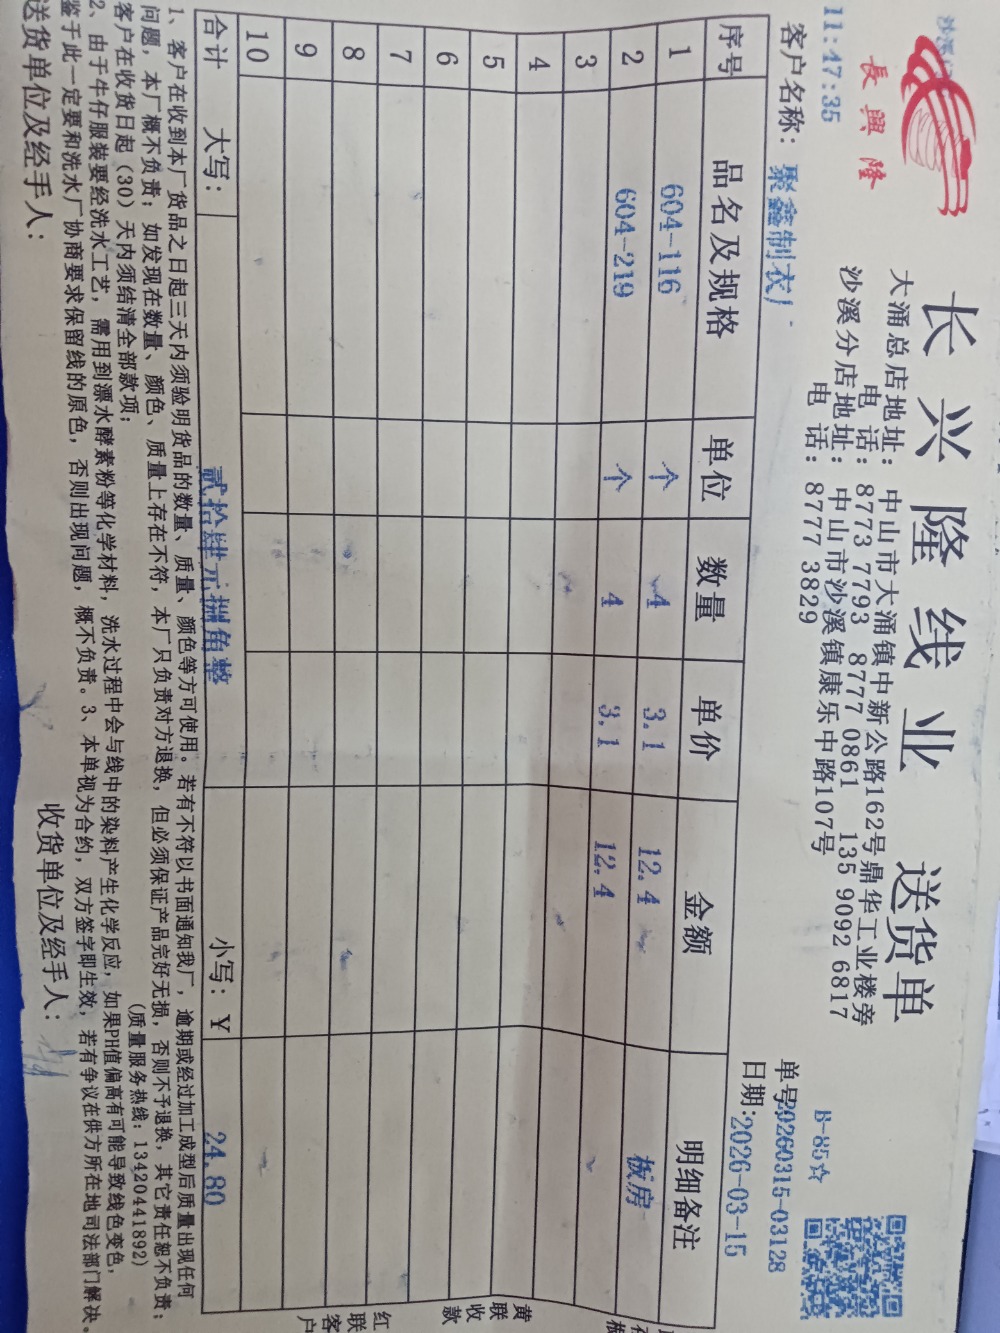 長興隆
长兴隆线业 送货单
大涌总店地址: 中山市大涌镇中新公路162号鼎华工业楼旁
电 话: 8773 7793 8777 0861 135 9092 6817
沙溪分店地址: 中山市沙溪镇康乐中路107号
电 话: 8777 3829
11:47:35
B-85☆
单号20260315-03128
客户名称: 聚鑫制衣厂
日期:2026-03-15
序号 品名及规格 单位 数量 单价 金额 明细备注
1 604-116 个 4 3.1 12.4 板房
2 604-219 个 4 3.1 12.4
3
4
5
6
7
8
9
10
合计 大写: 贰拾肆元捌角整 小写: ¥ 24.80
黄联收款
红联客户
1、客户在收到本厂货品之日起三天内须验明货品的数量、质量、颜色等方可使用。若有不符以书面通知我厂,逾期或经过加工成型后质量出现任何
问题,本厂概不负责;如发现在数量、颜色、质量上存在不符,本厂只负责对方退换,但必须保证产品完好无损,否则不予退换,其它责任恕不负责;
客户在收货日起(30)天内须结清全部款项; (质量服务热线: 13420441892)
2、由于牛仔服装要经洗水工艺,需用到漂水酵素粉等化学材料,洗水过程中会与线中的染料产生化学反应,如果PH值偏高有可能导致线色变色,
鉴于此一定要和洗水厂协商要求保留线的原色,否则出现问题,概不负责。3、本单视为合约,双方签字即生效,若有争议在供方所在地司法部门解决。
送货单位及经手人: 收货单位及经手人: